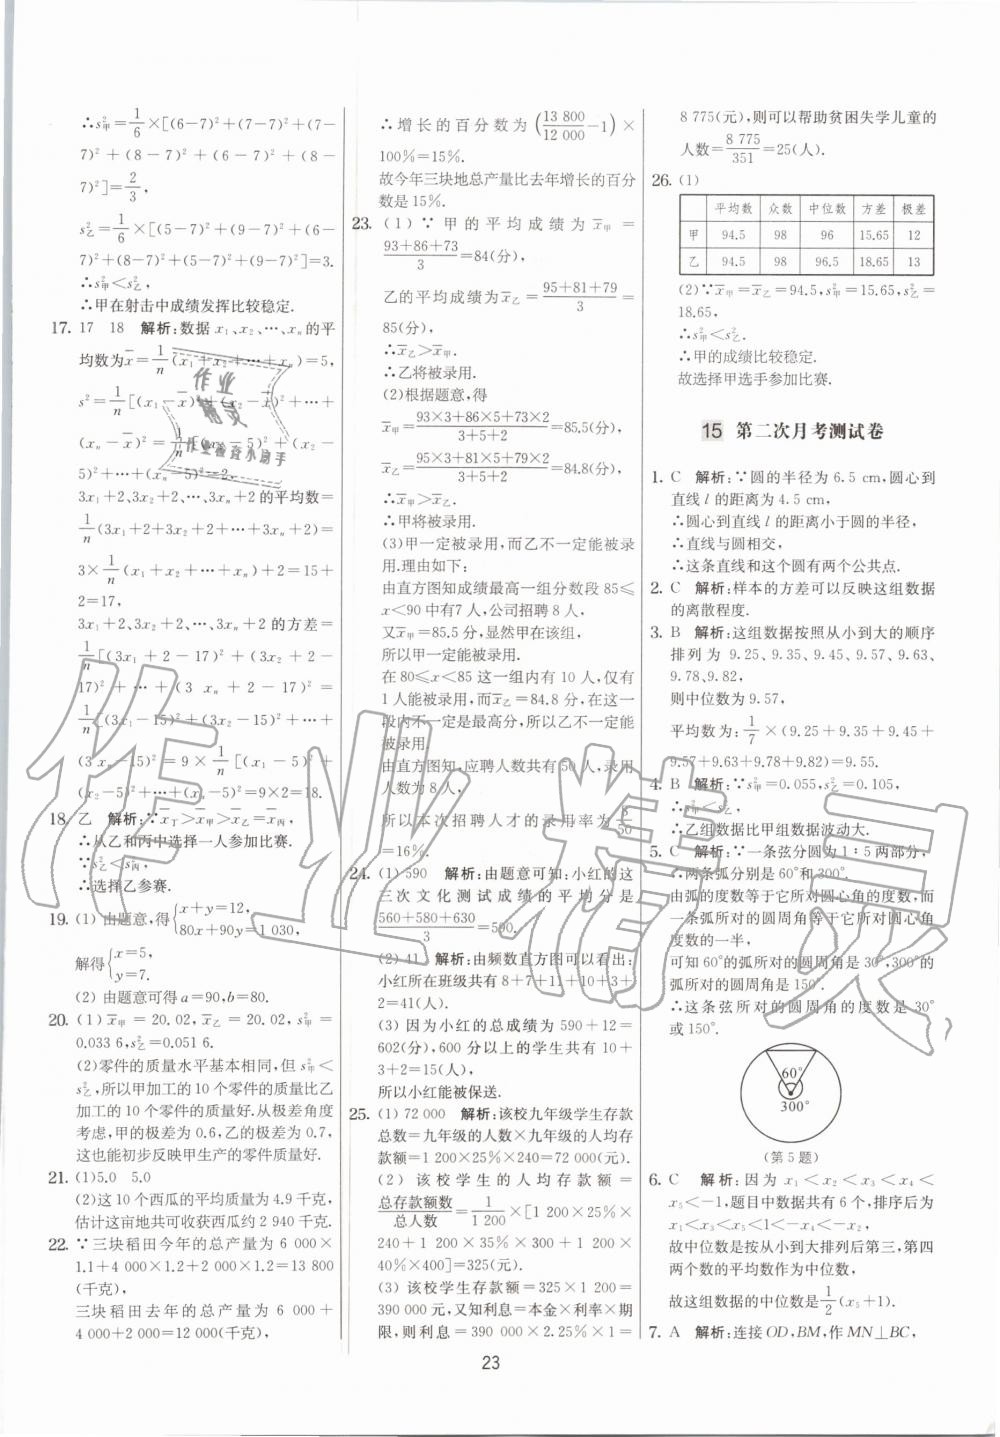 ∴s²甲=1/6×[(6-7)²+(7-7)²+(7-
7)²+(8-7)²+(6-7)²+(8-
7)²]=2/3,
s²乙=1/6×[(5-7)²+(9-7)²+(6-
7)²+(8-7)²+(5-7)²+(9-7)²]=3.
∴s²甲<s²乙,
∴甲在射击中成绩发挥比较稳定.
17. 17 18 解析:数据 x₁、x₂、…、xₙ的平
均数为x̄=1/n(x₁+x₂+…+xₙ)=5,
s²=1/n[(x₁-x̄)²+(x₂-x̄)²+…+
(xₙ-x̄)²]=1/n[(x₁-5)²+(x₂-
5)²+…+(xₙ-5)²]=2.
3x₁+2、3x₂+2、…、3xₙ+2的平均数=
1/n(3x₁+2+3x₂+2+…+3xₙ+2)=
3×1/n(x₁+x₂+…+xₙ)+2=15+
2=17,
3x₁+2、3x₂+2、…、3xₙ+2 的方差=
1/n[(3x₁+2-17)²+(3x₂+2-
17)²+…+(3xₙ+2-17)²]=
1/n[(3x₁-15)²+(3x₂-15)²+…+
(3xₙ-15)²]=9×1/n[(x₁-5)²+
(x₂-5)²+…+(xₙ-5)²]=9×2=18.
18. 乙 解析:∵x̄丁>x̄甲>x̄乙=x̄丙,
∴从乙和丙中选择一人参加比赛.
∵s²乙<s²丙,
∴选择乙参赛.
19. (1) 由题意,得{x+y=12,
80x+90y=1 030,
解得{x=5,
y=7.
(2) 由题意可得a=90,b=80.
20. (1) x̄甲=20.02,x̄乙=20.02,s²甲=
0.033 6,s²乙=0.051 6.
(2)零件的质量水平基本相同,但s²甲<
s²乙,所以甲加工的10个零件的质量比乙
加工的10个零件的质量好.从极差角度
考虑,甲的极差为0.6,乙的极差为0.7,
这也能初步反映甲生产的零件质量好.
21. (1)5.0 5.0
(2)这10个西瓜的平均质量为4.9千克,
估计这亩地共可收获西瓜约2 940千克.
22. ∵三块稻田今年的总产量为 6 000×
1.1+4 000×1.2+2 000×1.5=13 800
(千克),
三块稻田去年的总产量为 6 000+
4 000+2 000=12 000(千克),
∴增长的百分数为(13 800/12 000-1)×
100%=15%.
故今年三块地总产量比去年增长的百分
数是15%.
23. (1) ∵甲的平均成绩为x̄甲=
(93+86+73)/3=84(分),
乙的平均成绩为x̄乙=(95+81+79)/3=
85(分),
∴x̄乙>x̄甲.
∴乙将被录用.
(2)根据题意,得
x̄甲=(93×3+86×5+73×2)/(3+5+2)=85.5(分),
x̄乙=(95×3+81×5+79×2)/(3+5+2)=84.8(分),
∴x̄甲>x̄乙.
∴甲将被录用.
(3)甲一定被录用,而乙不一定能被录
用.理由如下:
由直方图知成绩最高一组分数段85≤
x<90中有7人,公司招聘8人,
又x̄甲=85.5分,显然甲在该组,
所以甲一定能被录用.
在80≤x<85这一组内有10人,仅有
1人能被录用,而x̄乙=84.8分,在这一
段内不一定是最高分,所以乙不一定能
被录用.
由直方图知,应聘人数共有50人,录用
人数为8人,
所以本次招聘人才的录用率为8/50
=16%.
24. (1)590 解析:由题意可知:小红的这
三次文化测试成绩的平均分是
(560+580+630)/3=590.
(2) 41 解析:由频数直方图可以看出:
小红所在班级共有8+7+11+10+3+
2=41(人).
(3) 因为小红的总成绩为590+12=
602(分),600分以上的学生共有10+
3+2=15(人),
所以小红能被保送.
25. (1) 72 000 解析:该校九年级学生存款
总数=九年级的人数×九年级的人均存
款额=1 200×25%×240=72 000(元).
(2) 该校学生的人均存款额=
存款总额数/总人数=1/1 200×[1 200×25%×
240+1 200×35%×300+1 200×
40%×400]=325(元).
(3) 该校学生存款额=325×1 200=
390 000元,又知利息=本金×利率×期
限,则利息=390 000×2.25%×1=
8 775(元),则可以帮助贫困失学儿童的
人数=8 775/351=25(人).
26. (1)
平均数 众数 中位数 方差 极差
甲 94.5 98 96 15.65 12
乙 94.5 98 96.5 18.65 13
(2)∵x̄甲=x̄乙=94.5,s²甲=15.65,s²乙=
18.65,
∴s²甲<s²乙.
∴甲的成绩比较稳定.
故选择甲选手参加比赛.
15 第二次月考测试卷
1. C 解析:∵圆的半径为6.5 cm,圆心到
直线l的距离为4.5 cm,
∴圆心到直线l的距离小于圆的半径,
∴直线与圆相交,
∴这条直线和这个圆有两个公共点.
2. C 解析:样本的方差可以反映这组数据
的离散程度.
3. B 解析:这组数据按照从小到大的顺序
排列为 9.25、9.35、9.45、9.57、9.63、
9.78、9.82,
则中位数为9.57,
平均数为:1/7×(9.25+9.35+9.45+
9.57+9.63+9.78+9.82)=9.55.
4. B 解析:∵s²甲=0.055,s²乙=0.105,
∴s²甲<s²乙.
∴乙组数据比甲组数据波动大.
5. C 解析:∵一条弦分圆为1∶5两部分,
∴两条弧分别是60°和300°.
由弧的度数等于它所对圆心角的度数,
一条弧所对的圆周角等于它所对圆心角
度数的一半,
可知60°的弧所对的圆周角是30°,300°的
弧所对的圆周角是150°.
∴这条弦所对的圆周角的度数是30°
或150°.
60°
300°
(第5题)
6. C 解析:因为x₁<x₂<x₃<x₄<
x₅<-1,题目中数据共有6个,排序后为
x₁<x₃<x₅<1<-x₄<-x₂,
故中位数是从小到大排列后第三,第四
两个数的平均数作为中位数,
故这组数据的中位数是1/2(x₅+1).
7. A 解析:连接OD,BM,作MN⊥BC,
23
作业精灵
作业检查小助手
作业精灵